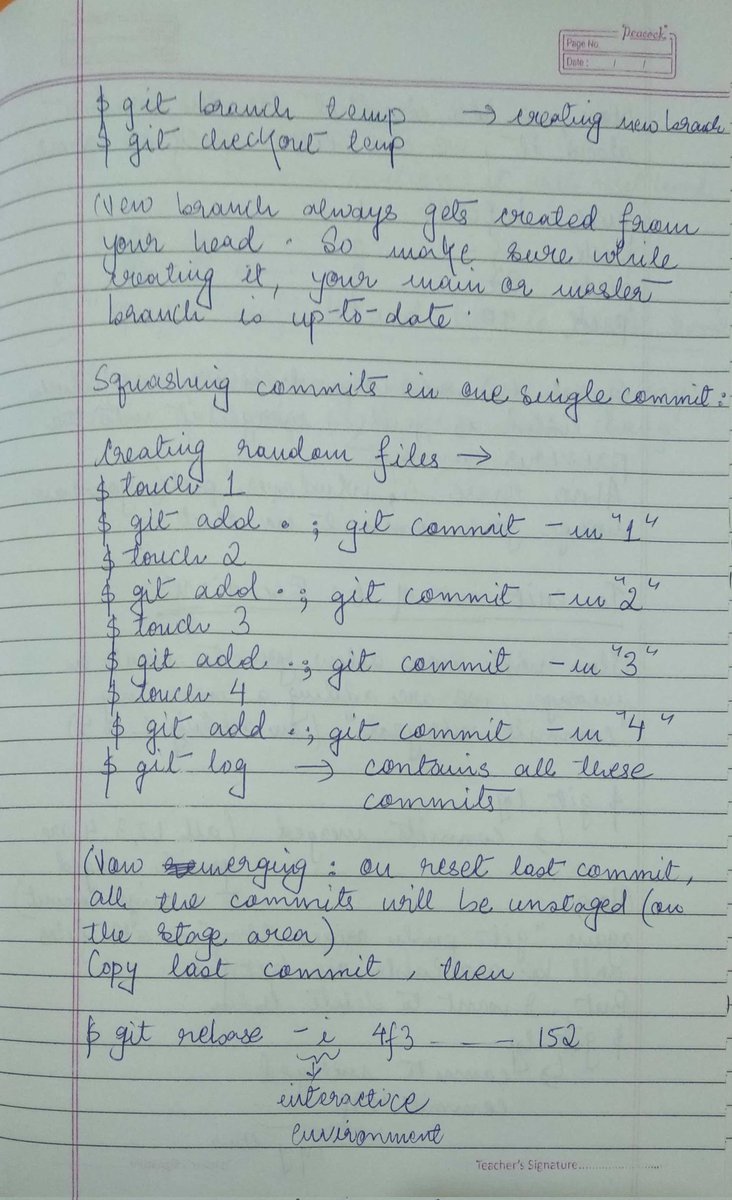 "Peacock"
Page No.
Date : / /
$ git branch temp → creating new branch
$ git checkout temp
New branch always gets created from
your head. So make sure while
creating it, your main or master
branch is up-to-date.
Squashing commits in one single commit:
Creating random files →
$ touch 1
$ git add . ; git commit -m "1"
$ touch 2
$ git add . ; git commit -m "2"
$ touch 3
$ git add . ; git commit -m "3"
$ touch 4
$ git add . ; git commit -m "4"
$ git log → contains all these
commits
Now merging : on reset last commit,
all the commits will be unstaged (on
the stage area)
Copy last commit, then
$ git rebase -i 4f3 - - - 152
interactice
environment
Teacher's Signature........................